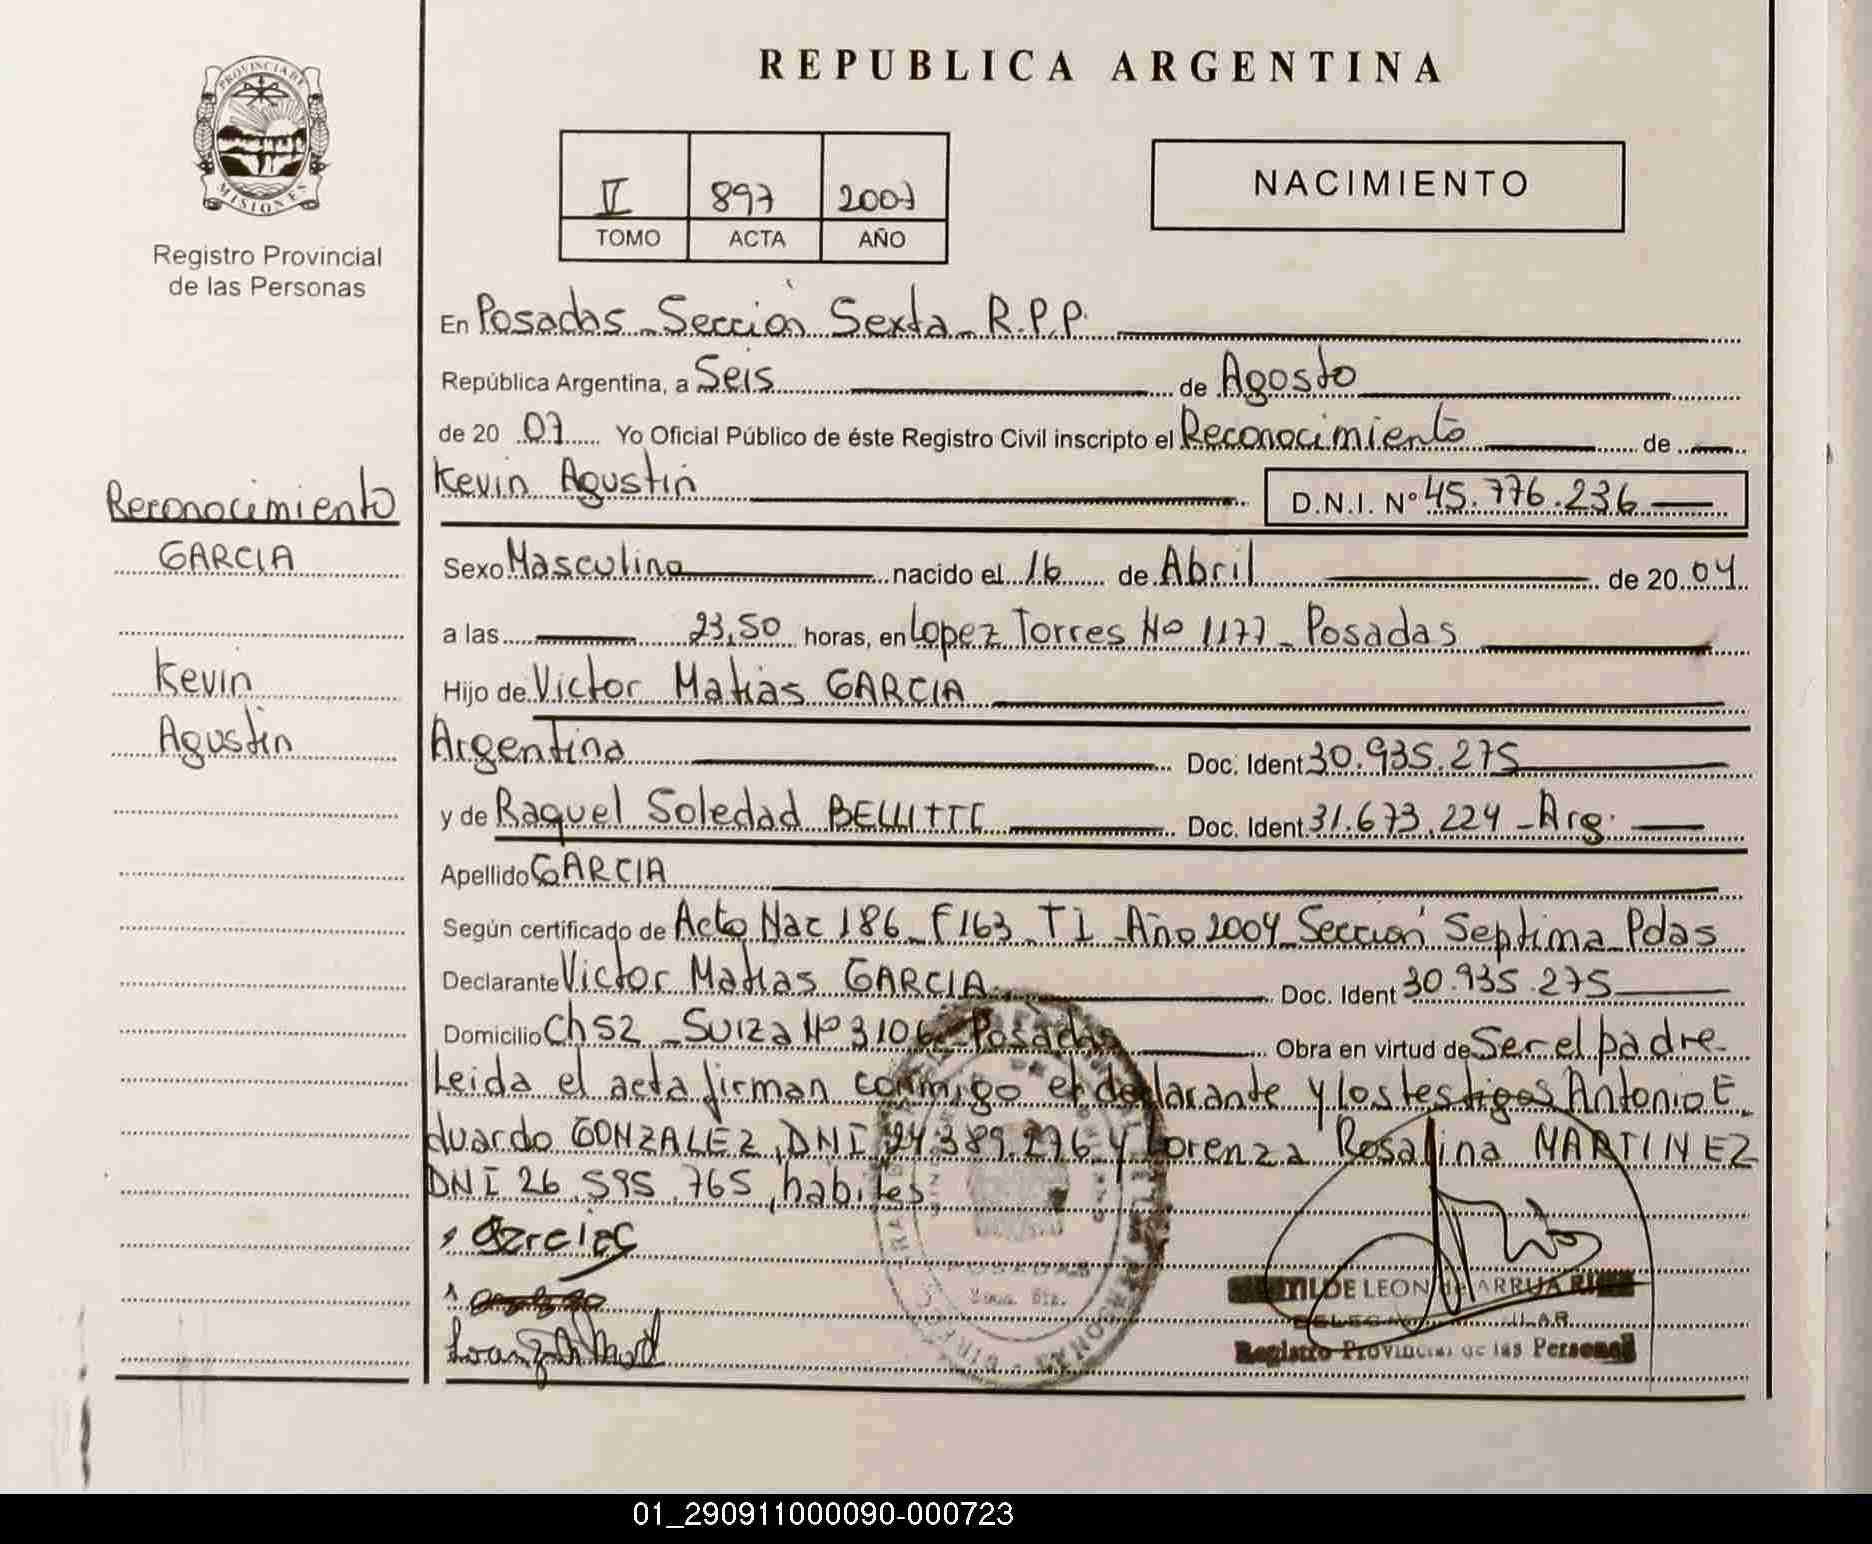 REPUBLICA ARGENTINA
PROVINCIA DE MISIONES
Registro Provincial
de las Personas
II 897 2007
TOMO ACTA AÑO
NACIMIENTO
En Posadas - Sección Sexta - R.P.P.
República Argentina, a Seis de Agosto
de 20 07 Yo Oficial Público de éste Registro Civil inscripto el Reconocimiento de
Kevin Agustín D.N.I. Nº 45.776.236
Reconocimiento
GARCIA
Kevin
Agustín
Sexo Masculino nacido el 16 de Abril de 20 04
a las 23,50 horas, en Lopez Torres Nº 1177 - Posadas
Hijo de Victor Matias GARCIA
Argentina Doc. Ident 30.935.275
y de Raquel Soledad Doc. Ident 31.673.224 - Arg.
Apellido GARCIA
Según certificado de Acta Nac 186 - F163 - T I - Año 2004 - Sección Septima - Pdas
Declarante Victor Matias GARCIA Doc. Ident 30.935.275
Domicilio Ch 52 - Suiza Nº 3106 - Posadas Obra en virtud de Ser el padre -
Leida el acta firman conmigo el declarante y los testigos Antonio E
duardo GONZALEZ, DNI 24.389.276 y Lorenza Rosalina MARTINEZ
DNI 26.595.765, habiles
POSADAS
DE LEON de ARRUA
Registro Provincial de las Personas
01_290911000090-000723